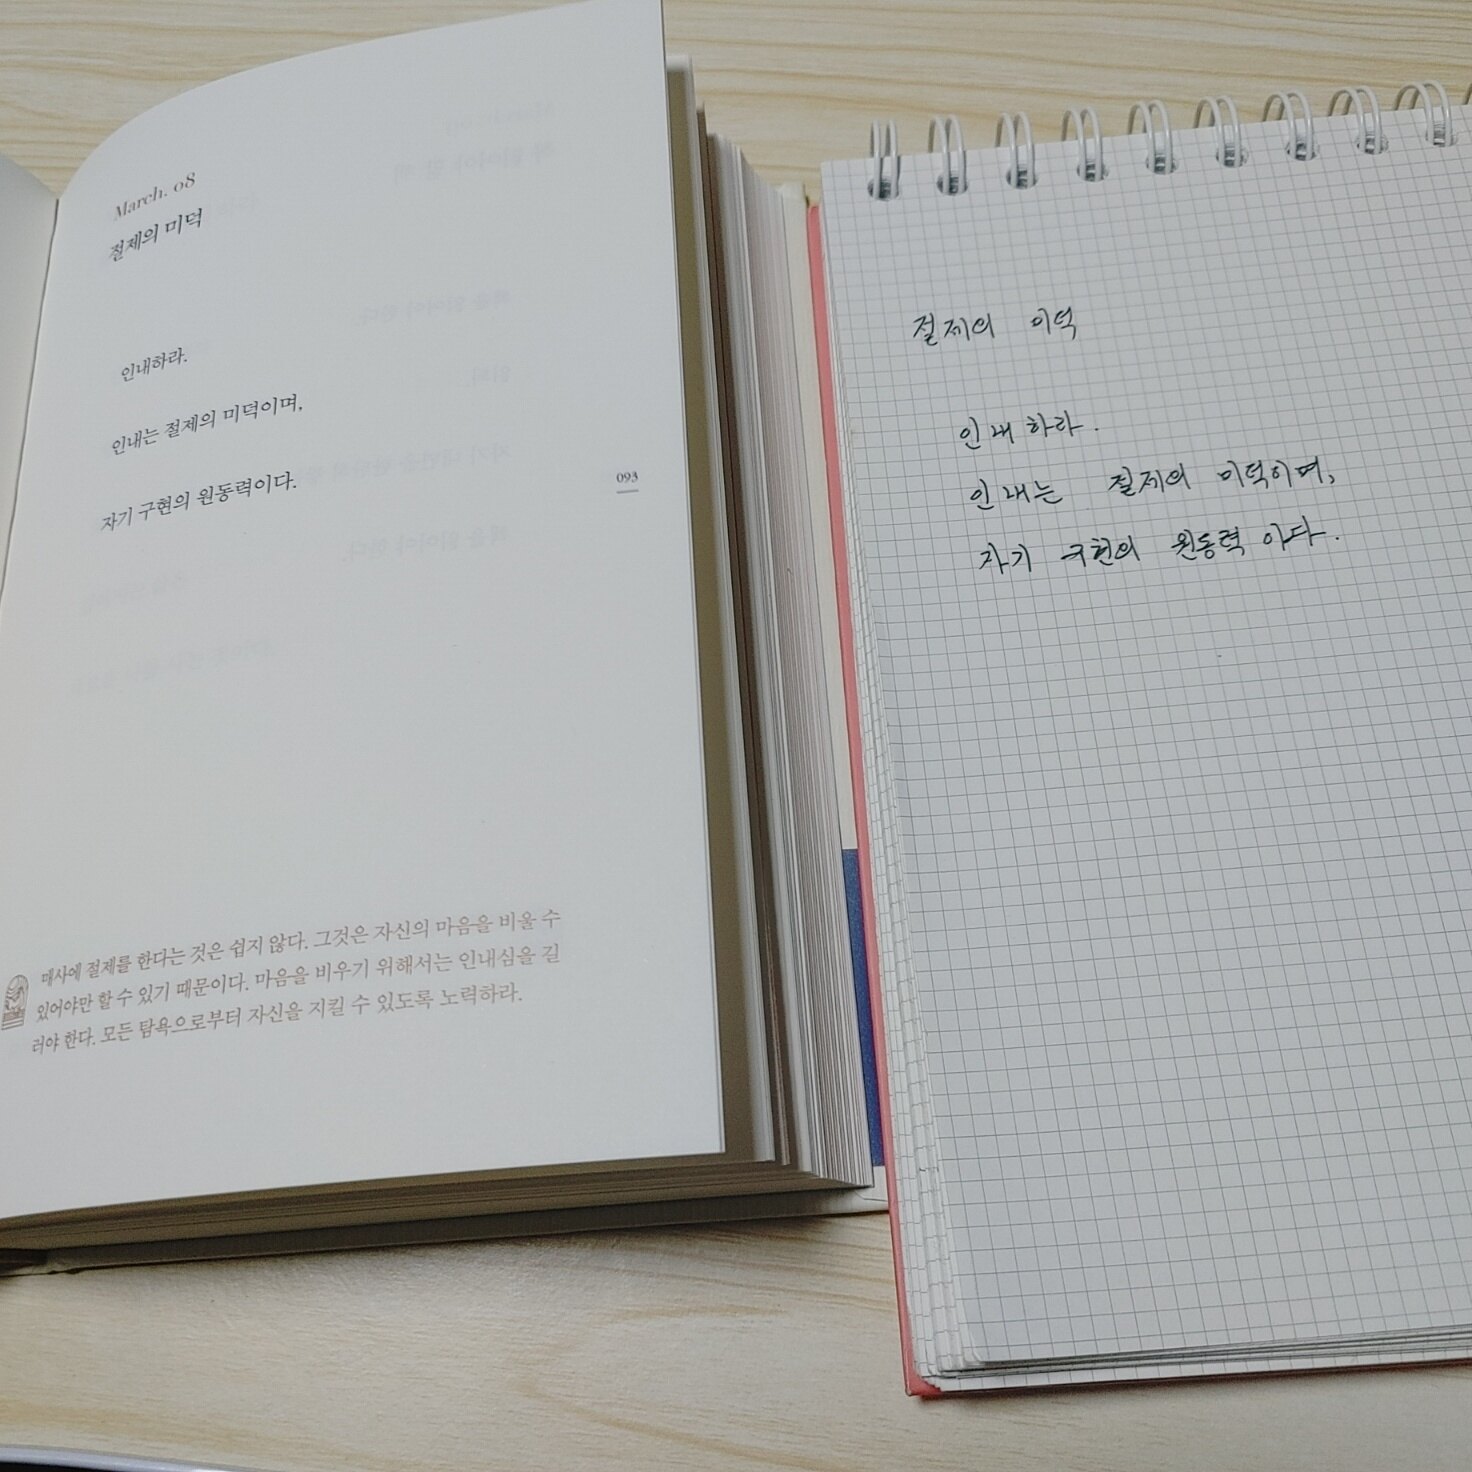 March. 08
절제의 미덕
인내하라.
인내는 절제의 미덕이며,
자기 구현의 원동력이다.
093
매사에 절제를 한다는 것은 쉽지 않다. 그것은 자신의 마음을 비울 수
있어야만 할 수 있기 때문이다. 마음을 비우기 위해서는 인내심을 길
러야 한다. 모든 탐욕으로부터 자신을 지킬 수 있도록 노력하라.
절제의 미덕
인내하라.
인내는 절제의 미덕이며,
자기 구현의 원동력 이다.